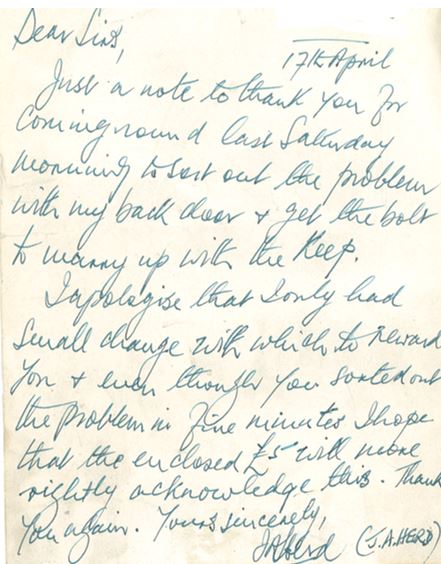 Dear Sirs,
17th April
Just a note to thank you for
coming round last Saturday
morning to sort out the problem
with my back door + get the bolt
to marry up with the Keep.
I apologise that I only had
small change with which to reward
you + even though you sorted out
the problem in five minutes I hope
that the enclosed £5 will more
rightly acknowledge this. Thank
you again. Yours sincerely,
JAHerd (J.A.HERD)